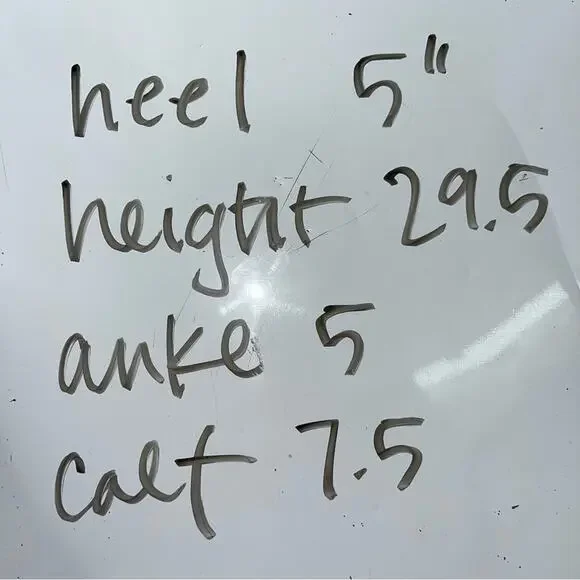 heel 5"
height 29.5
anke 5
calf 7.5